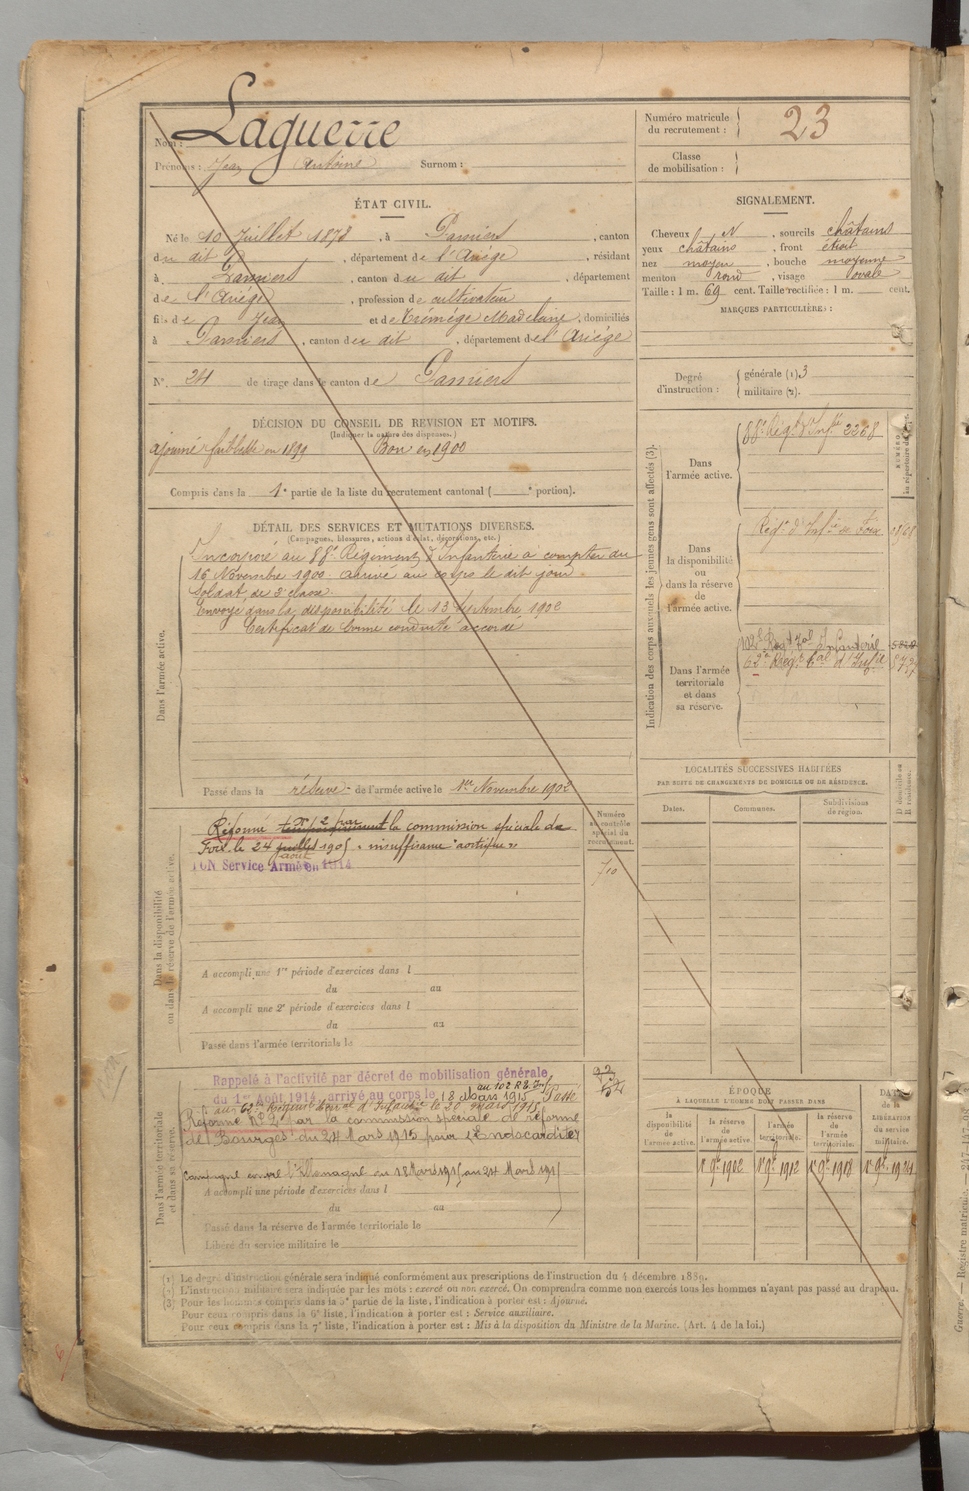 Nom : Laguerre
Prénoms : Jean Antoine Surnom :
Numéro matricule du recrutement : 23
Classe de mobilisation :
ÉTAT CIVIL.
Né le 10 Juillet 1878, à Pamiers, canton
du dit, département de l'Ariège, résidant
à Pamiers, canton du dit, département
de l'Ariège, profession de cultivateur
fils de Jean et de Trémège Madeleine, domiciliés
à Pamiers, canton du dit, département de l'Ariège
N° 24 de tirage dans le canton de Pamiers
SIGNALEMENT.
Cheveux N, sourcils châtains
yeux châtains, front étroit
nez moyen, bouche moyenne
menton rond, visage ovale
Taille : 1 m. 69 cent. Taille rectifiée : 1 m. cent.
MARQUES PARTICULIÈRES :
Degré d'instruction :
générale (1) 3
militaire (2).
DÉCISION DU CONSEIL DE REVISION ET MOTIFS.
(Indiquer la nature des dispenses.)
ajourné faiblesse en 1899 Bon en 1900
Compris dans la 1e partie de la liste du recrutement cantonal ( e portion).
DÉTAIL DES SERVICES ET MUTATIONS DIVERSES.
(Campagnes, blessures, actions d'éclat, décorations, etc.)
Dans l'armée active.
Incorporé au 88e Régiment d'Infanterie à compter du
16 Novembre 1900 arrivé au corps le dit jour
Soldat de 2e classe
Envoyé dans la disponibilité le 13 Septembre 1902
Certificat de bonne conduite accordé
Passé dans la réserve de l'armée active le 1er Novembre 1902
Indication des corps auxquels les jeunes gens sont affectés (3).
Dans l'armée active.
88e Régt d'Infie 2268
Dans la disponibilité ou dans la réserve de l'armée active.
Régt d'Infie de Foix
Dans l'armée territoriale et dans sa réserve.
102e Regt Tal Infanterie
62e Régt Tal d'Infie
LOCALITÉS SUCCESSIVES HABITÉES
PAR SUITE DE CHANGEMENTS DE DOMICILE OU DE RÉSIDENCE.
Dates. Communes. Subdivisions de région.
D domicile ou R résidence.
Dans la disponibilité ou dans la réserve de l'armée active.
Numéro au contrôle spécial du recrutement.
710
Réformé temporairement n° 2 par la commission spéciale de
Foix le 24 juillet août 1905 "insuffisance aortique"
BON Service Armé en 1914
A accompli une 1re période d'exercices dans l
du au
A accompli une 2e période d'exercices dans l
du au
Passé dans l'armée territoriale le
Dans l'armée territoriale et dans sa réserve.
Rappelé à l'activité par décret de mobilisation générale
du 1er Août 1914, arrivé au corps le 18 Mars 1915 au 102 R.T.I. Passé
au 62e Régiment Territ d'Infanterie le 20 Mars 1915
Réformé N° 2 par la commission spéciale de réforme
de Bourges du 24 Mars 1915 pour "Endocardite"
Campagne contre l'Allemagne du 18 Mars 1915 au 24 Mars 1915
A accompli une période d'exercices dans l
du au
Passé dans la réserve de l'armée territoriale le
Libéré du service militaire le
ÉPOQUE
À LAQUELLE L'HOMME DOIT PASSER DANS
la disponibilité de l'armée active.
la réserve de l'armée active.
l'armée territoriale.
la réserve de l'armée territoriale.
DATE de la LIBÉRATION du service militaire.
1er 9bre 1902 1er 9bre 1912 1er 9bre 1918 1er 9bre 1924
(1) Le degré d'instruction générale sera indiqué conformément aux prescriptions de l'instruction du 4 décembre 1889.
(2) L'instruction militaire sera indiquée par les mots : exercé ou non exercé. On comprendra comme non exercés tous les hommes n'ayant pas passé au drapeau.
(3) Pour les hommes compris dans la 5e partie de la liste, l'indication à porter est : Ajourné.
Pour ceux compris dans la 6e liste, l'indication à porter est : Service auxiliaire.
Pour ceux compris dans la 7e liste, l'indication à porter est : Mis à la disposition du Ministre de la Marine. (Art. 4 de la loi.)